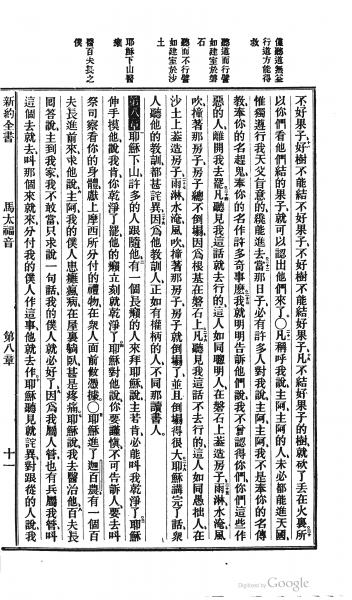 僅聽道無益
行這方能得
救
聽道而行譬
如建室於磐
石
聽而不行譬
如建室於沙
土
耶穌下山醫
癩
醫百夫長之
僕
不好果子好樹不能結不好果子不好樹不能結好果子凡不結好果子的樹就砍了丟在火裏所
以你們看他們結的果子就可以認出他們來了○凡稱呼我說主阿主阿的人未必都能進天國
惟獨遵行我天父旨意的纔能進去當那日子必有許多人對我說主阿主阿我不是奉你的名傳
教奉你的名趕鬼奉你的名作許多奇事麽我就明明告訴他們說我不曾認得你們你們這些作
惡的人離開我去罷凡聽見我這話就去行的這人如同聰明人在磐石上葢造房子雨淋水淹風
吹撞著那房子房子總不倒塌因爲根基在磐石上凡聽見我這話不去行的這人如同愚拙人在
沙土上葢造房子雨淋水淹風吹撞著那房子房子就倒塌了並且倒塌得很大耶穌講完了話衆
人聽他的教訓都甚詫異因爲他教訓人正如有權柄的人不同那讀書人
第八章耶穌下山許多的人跟隨他有一個長癩的人來拜耶穌說主若肯必能叫我乾淨了耶穌
伸手摸他說我肯你乾淨了罷他的癩立刻就乾淨了耶穌對他說你要謹慎不可告訴人要去叫
祭司察看你的身體獻上摩西所分付的禮物在衆人面前做憑據○耶穌進了迦百農有一個百
夫長進前來求他說主阿我的僕人患癱瘋病在屋裏躺臥甚是疼痛耶穌說我去醫治他百夫長
回答說主到我家我不敢當只求說一句話我的僕人就必好了因爲我屬人管也有兵屬我管叫
這個去就去叫那個來就來分付我的僕人作這事他就去作耶穌聽見就詫異對跟從的人說我
新約全書 馬太福音 第八章 十一
Digitized by Google